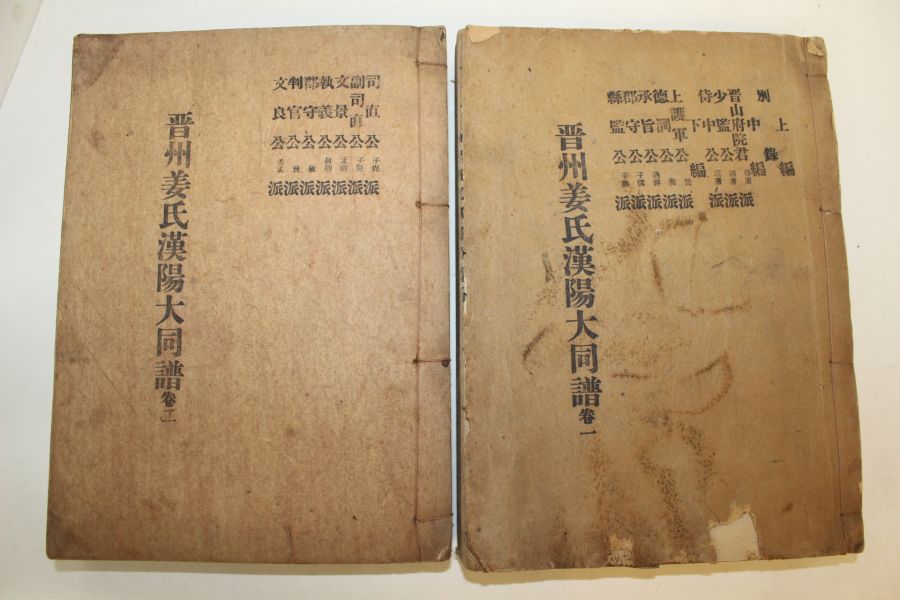 上編
別錄
中編
晋山府院君派
少監公派
侍中公派
下編
上護軍公派
德澗公派
承旨公派
郡守公派
縣監公派
晋州姜氏漢陽大同譜 卷一
司直公派
副司直公派
文景公派
執義公派
郡守公派
判官公派
文良公派
晋州姜氏漢陽大同譜 卷二